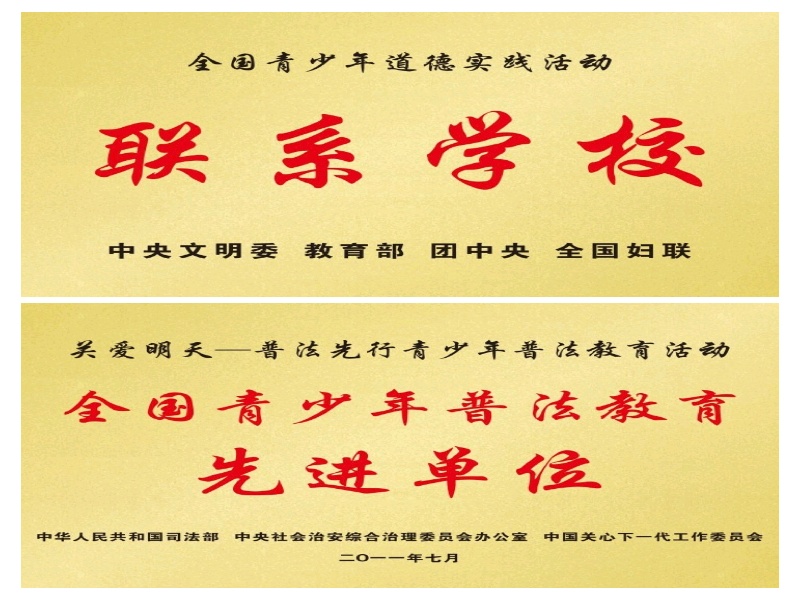 全国青少年道德实践活动
联系学校
中央文明委 教育部 团中央 全国妇联
关爱明天—普法先行青少年普法教育活动
全国青少年普法教育
先进单位
中华人民共和国司法部 中央社会治安综合治理委员会办公室 中国关心下一代工作委员会
二〇一一年七月